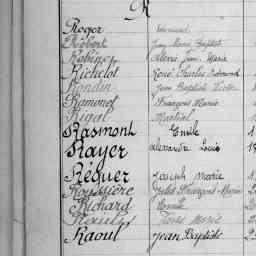 R
Roger Edmond
Robert Jean Marie Baptiste
Robinet Alexis Jean Marie
Richelot René Charles Edmond
Rondin Jean Baptiste Victor
Ramonet François Marie
Rigal Martial
Rasmont Emile
Rayer Alexandre Louis
Réguer Joseph Marie
Roussière Jules François Marie
Richard Emile
Marie
Raoul Jean Baptiste